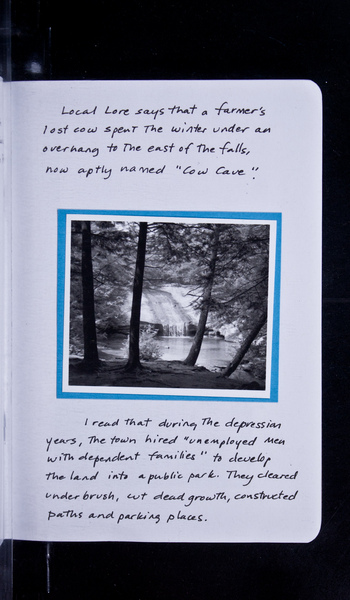 Local Lore says that a farmer's
lost cow spent the winter under an
overhang to the east of the falls,
now aptly named "Cow Cave".
I read that during the depression
years, the town hired "unemployed men
with dependent families" to develop
the land into a public park. They cleared
underbrush, cut dead growth, constructed
paths and parking places.